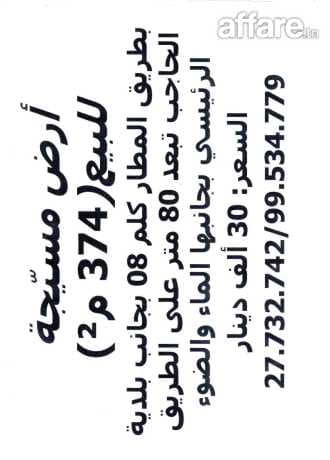 affare.tn
أرض مسيّجة
للبيع(374 م²)
بطريق المطار كلم 08 بجانب بلدية
الحاجب تبعد 80 متر على الطريق
الرئيسي بجانبها الماء والضوء
السعر: 30 ألف دينار
27.732.742/99.534.779